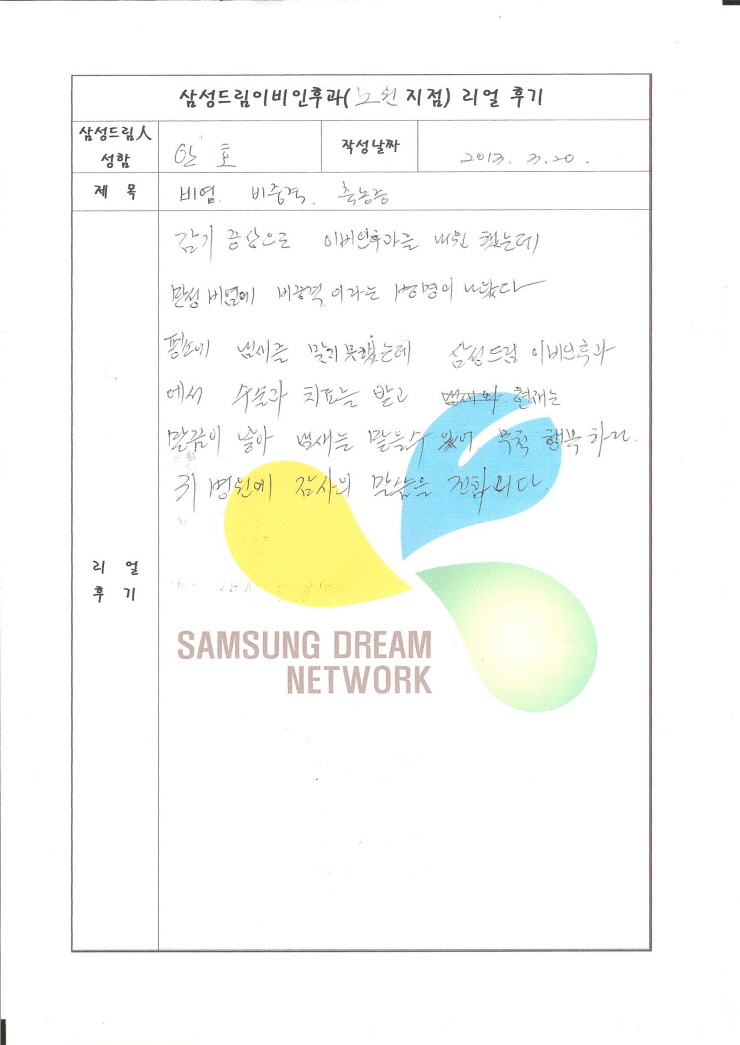 삼성드림이비인후과(노원 지점) 리얼 후기
삼성드림人 성함
안 호
작성날짜
2013. 3. 20.
제 목
비염. 비중격. 축농증
리 얼 후 기
감기 증상으로 이비인후과를 내원 했는데
만성 비염에 비중격 이라는 병명이 나왔다
평소에 냄새를 맡지 못했는데 삼성드림 이비인후과
에서 수술과 치료를 받고 현재는
말끔이 낳아 냄새를 맡을수 있어 무척 행복 하다.
귀 병원에 감사의 말씀을 전합니다.
SAMSUNG DREAM
NETWORK